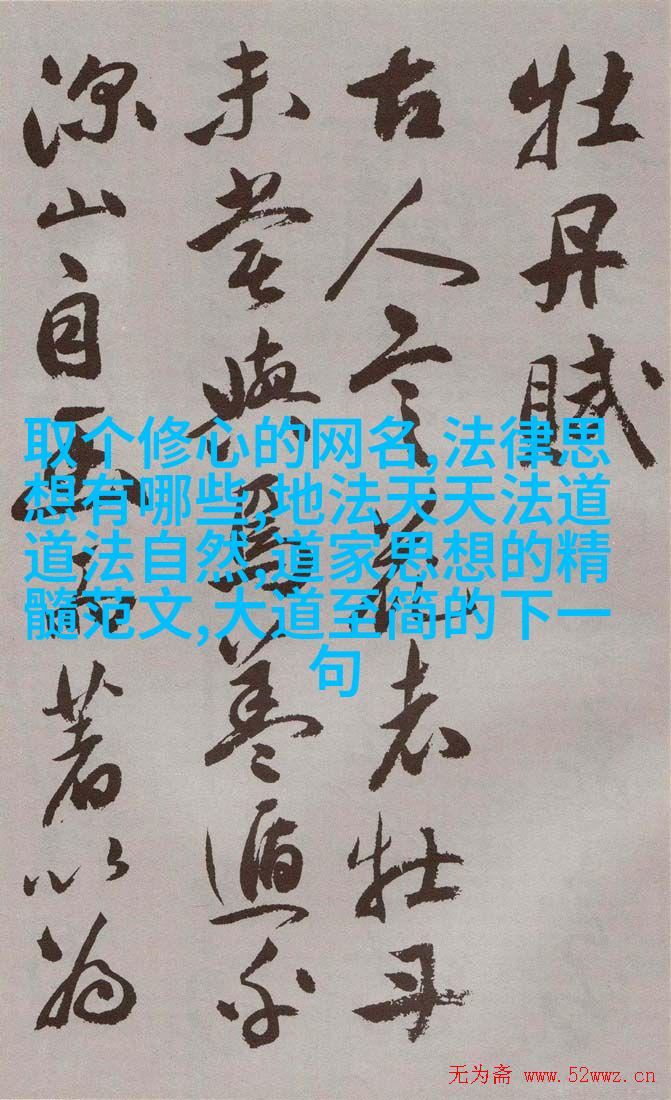 牡丹賦
古人言花者牡丹
未嘗與焉蓋遁乎
深山自幽而著以為
取个修心的网名,法律思
想有哪些,地法天天法道
道法自然,道家思想的精
髓范文,大道至简的下一
句
无为斋 www.52wwz.cn